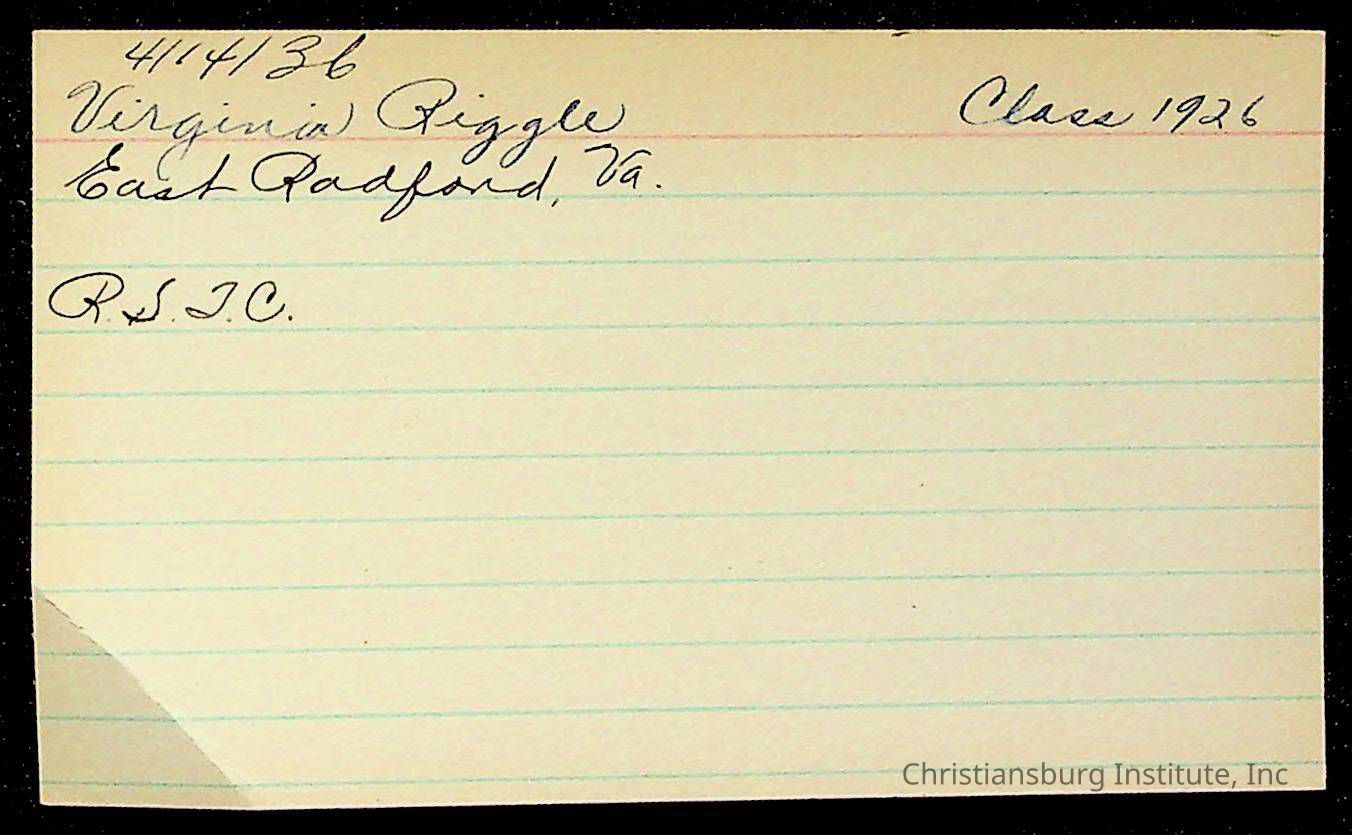 4/14/36
Virginia Riggle Class 1926
East Radford, Va.
R.S.T.C.
Christiansburg Institute, Inc